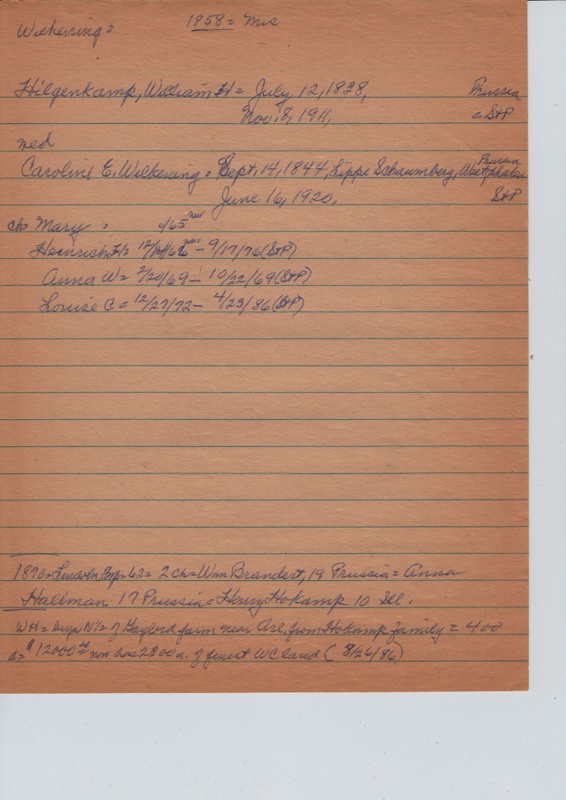 Wilkening = 1858 = Mis
Hilgenkamp, William H = July 12, 1838, Prussia
Nov. 8, 1911, = StP
med
Caroline E. Wilkening = Sept. 14, 1844, Lippe Schaumberg, Westphalia Prussia
June 16, 1920. StP
chs Mary =
Heinrich H = - 9/17/76 (StP)
Anna W = 2/20/69 - 10/22/69 (StP)
Louise C = 12/27/72 - 4/23/86 (StP)
1870 = Lincoln Twp = 62 = 2 ch = Wm Brandert, 19 Prussia = Anna
Hallman 17 Prussia = Henry Hokamp 10 Ill.
WH = buys N 1/2 of Gaylord farm near Arl, from Hokamp family = 400
a = $12000 = now has 2300 a. of finest WC land (8/26/86)